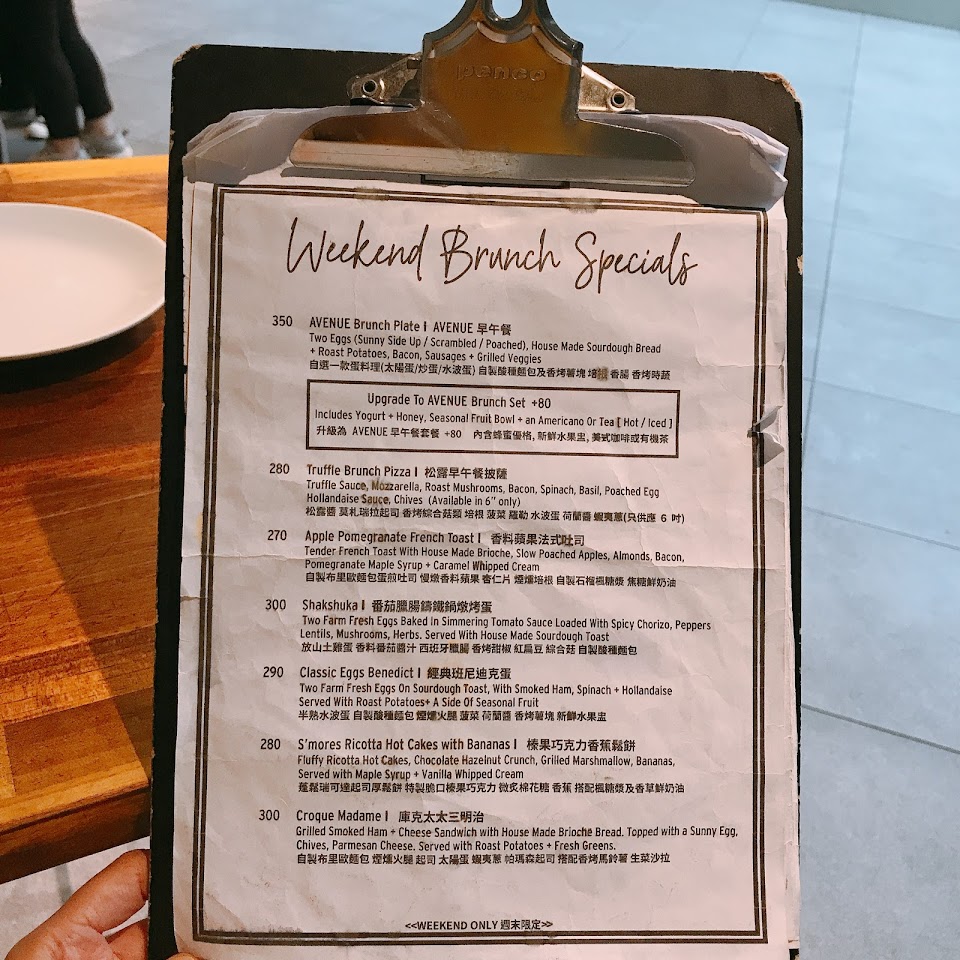 penco
Weekend Brunch Specials
350 AVENUE Brunch Plate | AVENUE 早午餐
Two Eggs (Sunny Side Up / Scrambled / Poached), House Made Sourdough Bread
+ Roast Potatoes, Bacon, Sausages + Grilled Veggies
自選一款蛋料理(太陽蛋/炒蛋/水波蛋) 自製酸種麵包及香烤薯塊 培根 香腸 香烤時蔬
Upgrade To AVENUE Brunch Set +80
Includes Yogurt + Honey, Seasonal Fruit Bowl + an Americano Or Tea [ Hot / Iced ]
升級為 AVENUE 早午餐套餐 +80 內含蜂蜜優格, 新鮮水果盅, 美式咖啡或有機茶
280 Truffle Brunch Pizza | 松露早午餐披薩
Truffle Sauce, Mozzarella, Roast Mushrooms, Bacon, Spinach, Basil, Poached Egg
Hollandaise Sauce, Chives (Available in 6" only)
松露醬 莫札瑞拉起司 香烤綜合菇類 培根 菠菜 羅勒 水波蛋 荷蘭醬 蝦夷蔥(只供應 6 吋)
270 Apple Pomegranate French Toast | 香料蘋果法式吐司
Tender French Toast With House Made Brioche, Slow Poached Apples, Almonds, Bacon,
Pomegranate Maple Syrup + Caramel Whipped Cream
自製布里歐麵包蛋煎吐司 慢燉香料蘋果 杏仁片 煙燻培根 自製石榴楓糖漿 焦糖鮮奶油
300 Shakshuka | 番茄臘腸鑄鐵鍋燉烤蛋
Two Farm Fresh Eggs Baked In Simmering Tomato Sauce Loaded With Spicy Chorizo, Peppers
Lentils, Mushrooms, Herbs. Served With House Made Sourdough Toast
放山土雞蛋 香料番茄醬汁 西班牙臘腸 香烤甜椒 紅扁豆 綜合菇 自製酸種麵包
290 Classic Eggs Benedict | 經典班尼迪克蛋
Two Farm Fresh Eggs On Sourdough Toast, With Smoked Ham, Spinach + Hollandaise
Served With Roast Potatoes+ A Side Of Seasonal Fruit
半熟水波蛋 自製酸種麵包 煙燻火腿 菠菜 荷蘭醬 香烤薯塊 新鮮水果盅
280 S'mores Ricotta Hot Cakes with Bananas | 榛果巧克力香蕉鬆餅
Fluffy Ricotta Hot Cakes, Chocolate Hazelnut Crunch, Grilled Marshmallow, Bananas,
Served with Maple Syrup + Vanilla Whipped Cream
蓬鬆瑞可達起司厚鬆餅 特製脆口榛果巧克力 微炙棉花糖 香蕉 搭配楓糖漿及香草鮮奶油
300 Croque Madame | 庫克太太三明治
Grilled Smoked Ham + Cheese Sandwich with House Made Brioche Bread. Topped with a Sunny Egg,
Chives, Parmesan Cheese. Served with Roast Potatoes + Fresh Greens.
自製布里歐麵包 煙燻火腿 起司 太陽蛋 蝦夷蔥 帕瑪森起司 搭配香烤馬鈴薯 生菜沙拉
<<WEEKEND ONLY 週末限定>>